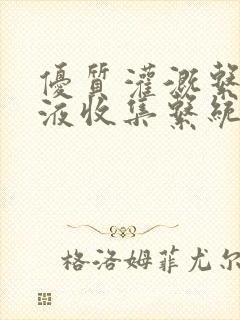 優質灌溉繫
液收集繫統
格洛姆菲尤尔